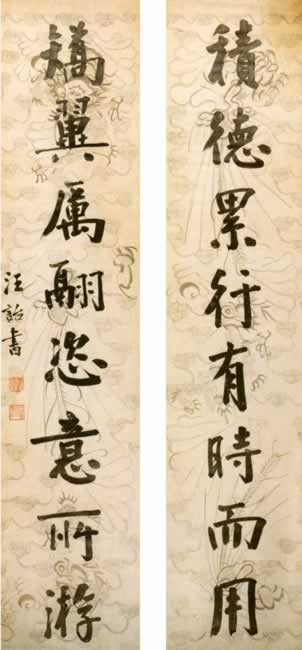 積德累行有時而用
矯翼厲翮恣意所游
汪詒書